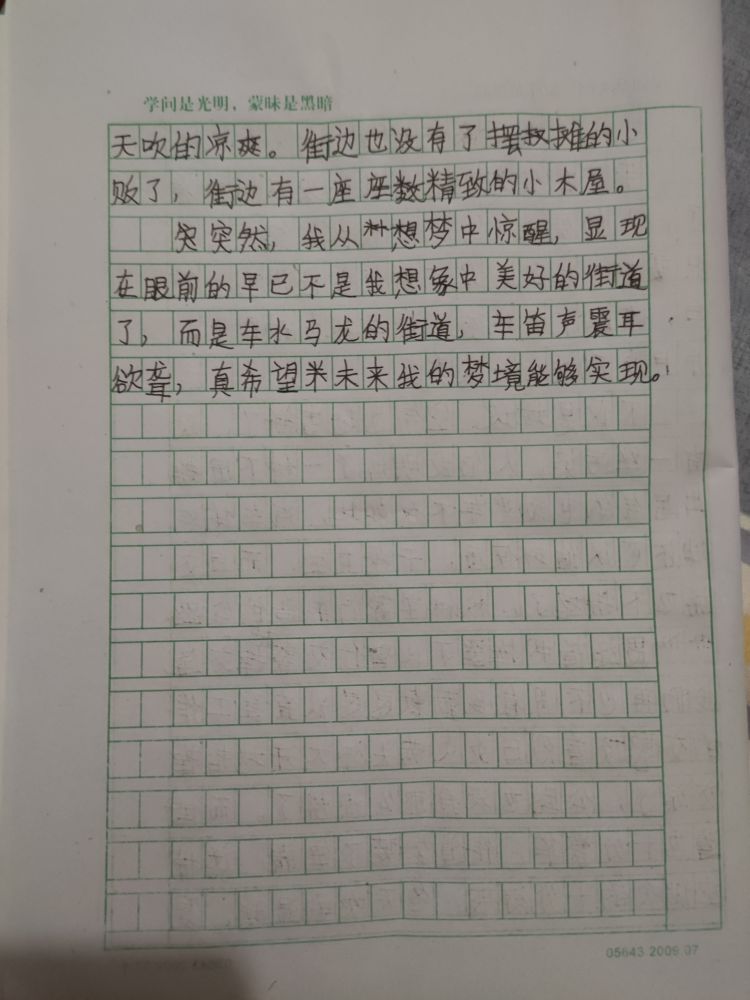 学问是光明，蒙昧是黑暗
天吹的凉爽。街边也没有了摆摊的小
败了，街边有一座座数精致的小木屋。
突突然，我从想梦中惊醒，显现
在眼前的早已不是我想象中美好的街道
了，而是车水马龙的街道，车笛声震耳
欲聋，真希望未来我的梦境能够实现。
05643.2009.07